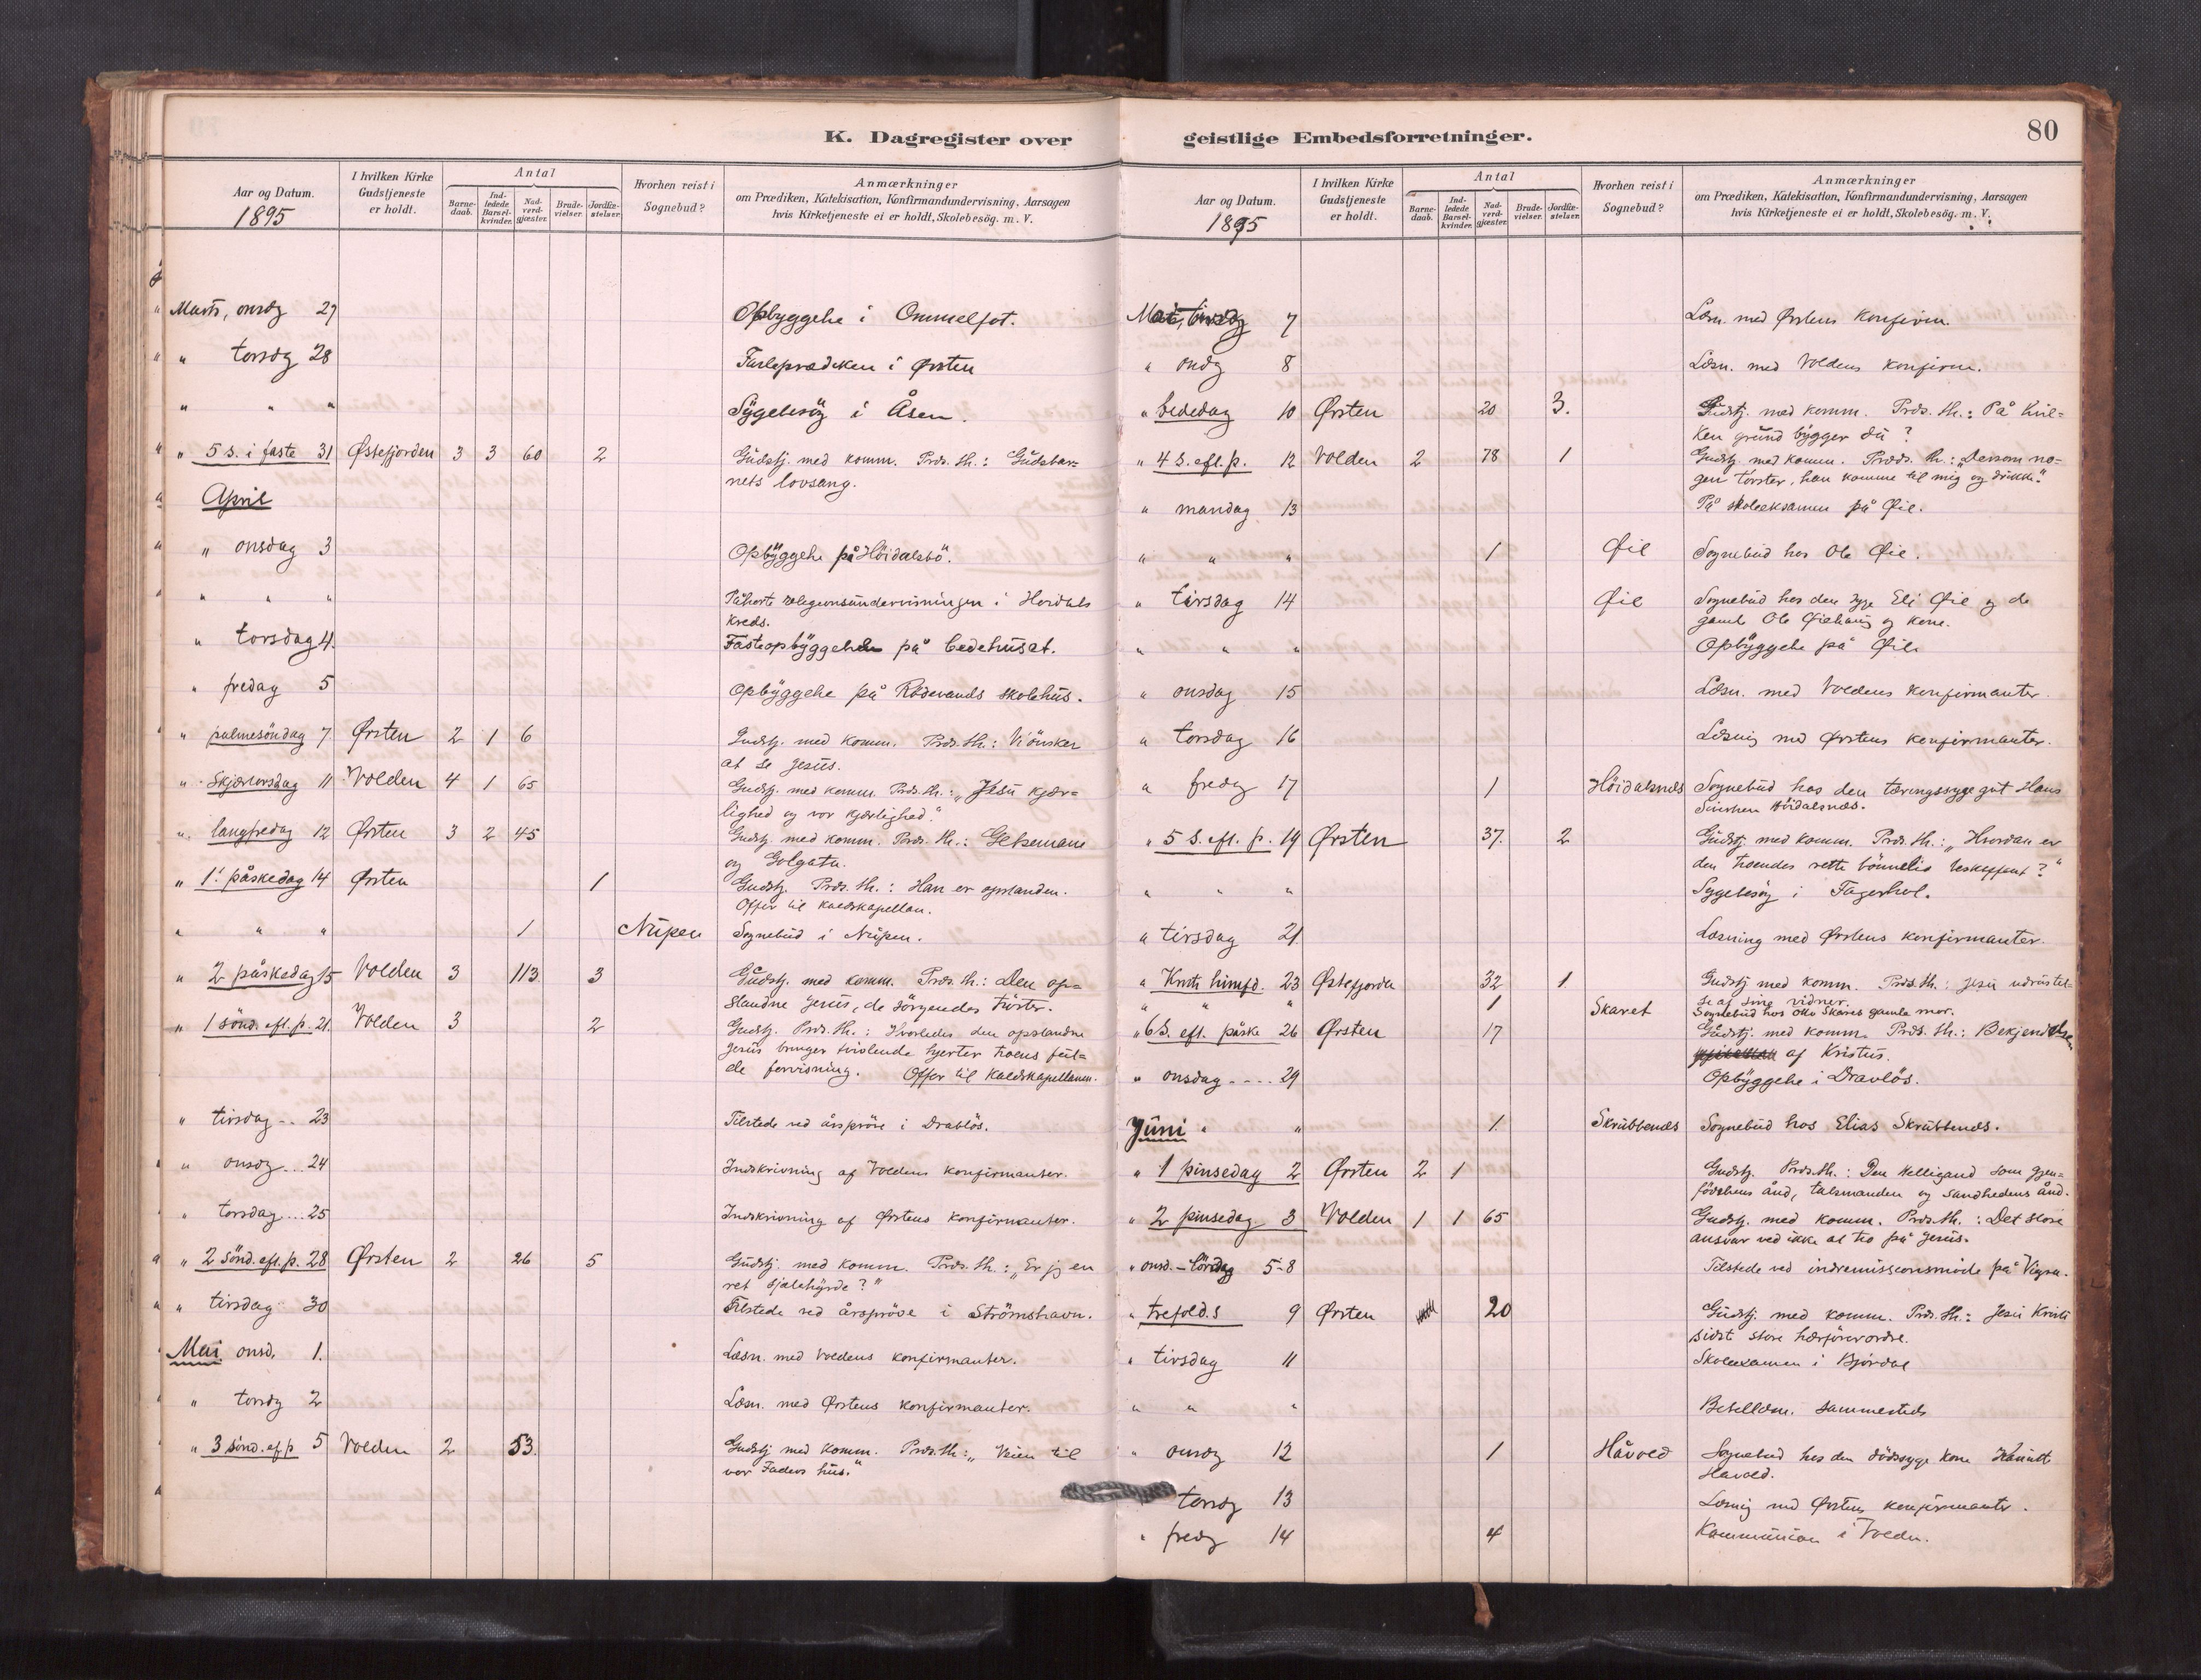 K. Dagregister over
Aar og Datum.
1895
I hvilken Kirke
Gudstjeneste
er holdt.
Antal
Barne-
daab.
Ind-
ledede
Barsel-
kvinder.
Nad-
verd-
gjæster.
Brude-
vielser.
Jordfæ-
stelser.
Hvorhen reist i
Sognebud?
Anmærkninger
om Prædiken, Katekisation, Konfirmandundervisning, Aarsagen
hvis Kirketjeneste ei er holdt, Skolebesög. m. V.
Marts, onsdg 27 Opbyggelse i Ommelfot.
" torsdg 28 Fasteprædiken i Ørsten
" " " Sygebesög i Åsen.
" 5 s. i faste 31 Østefjorden 3 3 60 2 Gudstj. med komm. Præd. th.: Gudsbar-
nets lovsang.
April
" onsdag 3 Opbyggelse på Höidalsbö.
" " " Påhørte religionsundervisningen i Herdals
kreds.
" torsdag 4. Fasteopbyggelse på bedehuset.
" fredag 5 Opbyggelse på Rödevands skolehus.
" palmesöndag 7 Ørsten 2 1 6 Gudstj. med komm. Præd. th.: Vi önsker
at se Jesus.
" Skjærtorsdag 11 Volden 4 1 65 Gudstj. med komm. Præd. th.: "Jesu kjær-
lighed og vor kjærlighed."
" langfredag 12 Ørsten 3 2 45 Gudstj. med komm. Præd. th.: Getsemane
og Golgata.
" 1. påskedag 14 Ørsten 1 Gudstj. Præd. th.: Han er opstanden.
Offer til kaldskapellan.
" " " 1 Nupen Sognebud i Nupen.
" 2 påskedag 15 Volden 3 113 3 Gudstj. med komm. Præd. th.: Den op-
standne Jesus, de sörgendes tröster.
" 1 sönd. eft. p. 21. Volden 3 2 Gudstj. Præd. th.: Hvorledes den opstandne
Jesus bringer tvivlende hjerter troens ful-
de forvisning. Offer til Kaldskapellanen.
" tirsdag -- 23 Tilstede ved årspröve i Drablös.
" onsdg ... 24 Indskrivning af Voldens konfirmanter.
" torsdag ... 25 Indskrivning af Ørstens konfirmanter.
" 2 Sönd. eft. p. 28 Ørsten 2 26 5 Gudstj. med komm. Præd. th.: "Er jeg en
ret sjælehyrde?"
" tirsdag 30 Tilstede ved årspröve i Strömshavn.
Mai onsd. 1. Læsn. med Voldens konfirmanter.
" torsdg 2 Læsn. med Ørstens konfirmanter.
" 3 sönd. ef p 5 Volden 2 53. Gudstj med komm. Præd. th.: "Veien til
vor Faders hus."
geistlige Embedsforretninger.
80
Aar og Datum.
1895
I hvilken Kirke
Gudstjeneste
er holdt.
Antal
Barne-
daab.
Ind-
ledede
Barsel-
kvinder.
Nad-
verd-
gjæster.
Brude-
vielser.
Jordfæ-
stelser.
Hvorhen reist i
Sognebud?
Anmærkninger
om Prædiken, Katekisation, Konfirmandundervisning, Aarsagen
hvis Kirketjeneste ei er holdt, Skolebesög. m. V.
Mai, tirsdg 7 Læsn. med Ørstens konfirm.
" onsdg 8 Læsn. med Voldens konfirm.
" bededag 10 Ørsten 20 3. Gudstj. med komm. Præd. th.: På hvil-
ken grund bygger du?
" 4 S. eft. p. 12 Volden 2 78 1 Gudstj. med komm. Præd. th.: "Dersom no-
gen törster, han komme til mig og drikke."
" mandag 13 På skoleeksamen på Øie.
" " " 1 Øie Sognebud hos Ole Øie.
" tirsdag 14 Øie Sognebud hos den syge Eli Øie og de
gamle Ole og kone.
" " " Opbyggelse på Øie.
" onsdag 15 Læsn. med Voldens konfirmanter
" torsdag 16 Læsning med Ørstens konfirmanter.
" fredag 17 1 Höidalsnes Sognebud hos den tæringssyge gut Hans
Höidalsnes.
" 5 S. eft. p. 19 Ørsten 37. 2 Gudstj. med komm. Præd. th.: "Hvordan er
den troendes rette bönneliv beskaffent?"
" " " Sygebesög i
" tirsdag 21 Læsning med Ørstens konfirmanter.
" Kristi himfd. 23 Østefjorden 32 1 Gudstj med komm. Præd. th.: Jesu udrustel-
se af sine vidner.
" " " 1 Skaret Sognebud hos Skares gamle mor.
" 6 S. eft. påske 26 Ørsten 17 Gudstj. med komm. Præd. th.: Bekjendelsen
af Kristus.
" onsdag ---- 29 Opbyggelse i Dravlös.
Juni " " 1 Skrubbenes Sognebud hos Elias Skrubbenes.
" 1 pinsedag 2 Ørsten 2 1 Gudstj. Præd. th.: Den Helligand som gjen-
födelsens ånd, talsmanden og Sandhedens ånd.
" 2 pinsedag 3 Volden 1 1 65 Gudstj. med komm. Præd. th.: Det store
ansvar ved ikke at tro på Jesus.
" onsd. - lördag 5-8 Tilstede ved indremissionsmöde på Vigra.
" trefold. s 9 Ørsten 20 Gudstj. med komm. Præd. th.: Jesu Kristi
sidst store hærförerordre.
" tirsdag 11 Skoleexamen i Björdal
" " " Bibellæsn. sammesteds
" onsdg 12 1 Håvold Sognebud hos den dödssyge kone
Havold.
" torsdg 13 Læsning med Ørstens konfirmanter.
" fredg 14 4 Kommunion i Volden.